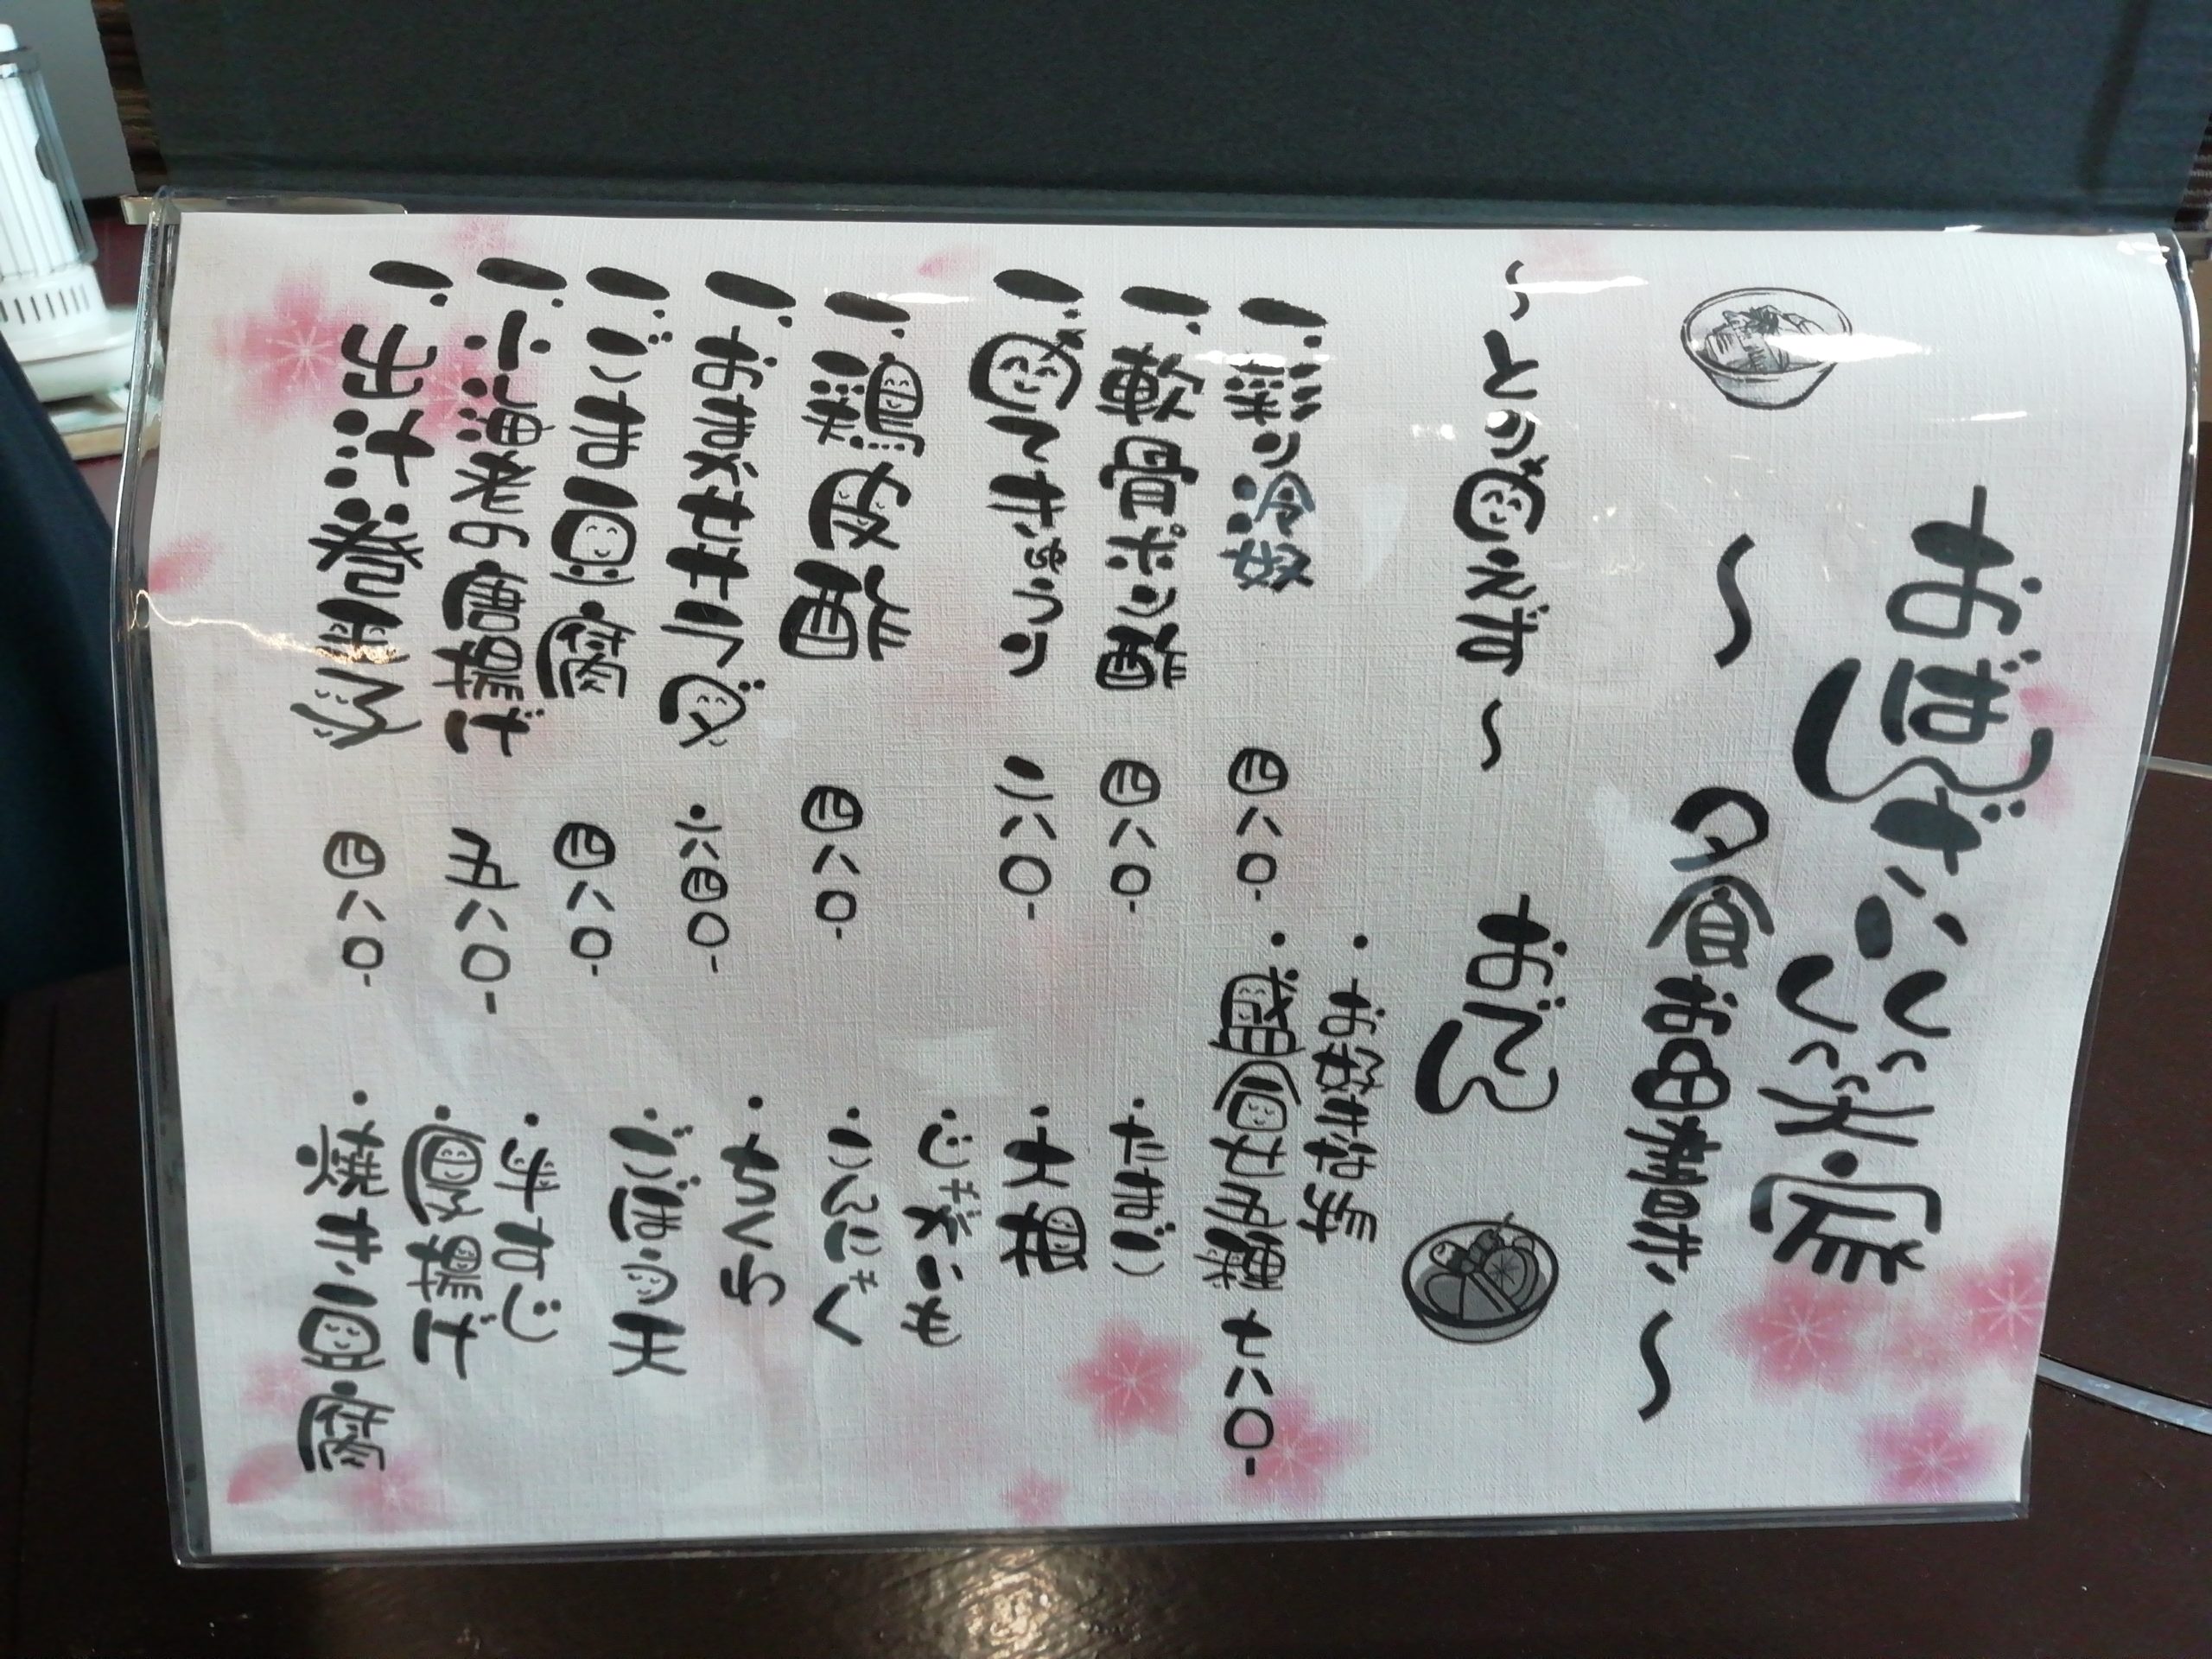 おばんざい 笑家
〜夕食お品書き〜
〜とりあえず〜
一、彩り冷奴 四八〇-
一、軟骨ポン酢 四八〇-
一、あてきゅうり 二八〇-
一、鶏皮酢 四八〇-
一、おまかせサラダ 六四〇-
一、ごま豆腐 四八〇-
一、小海老の唐揚げ 五八〇-
一、出汁巻玉子 四八〇-
おでん
・盛合せ五種 七八〇-
・たまご
・大根
・じゃがいも
・こんにゃく
・ちくわ
・ごぼう天
・牛すじ
・厚揚げ
・焼き豆腐